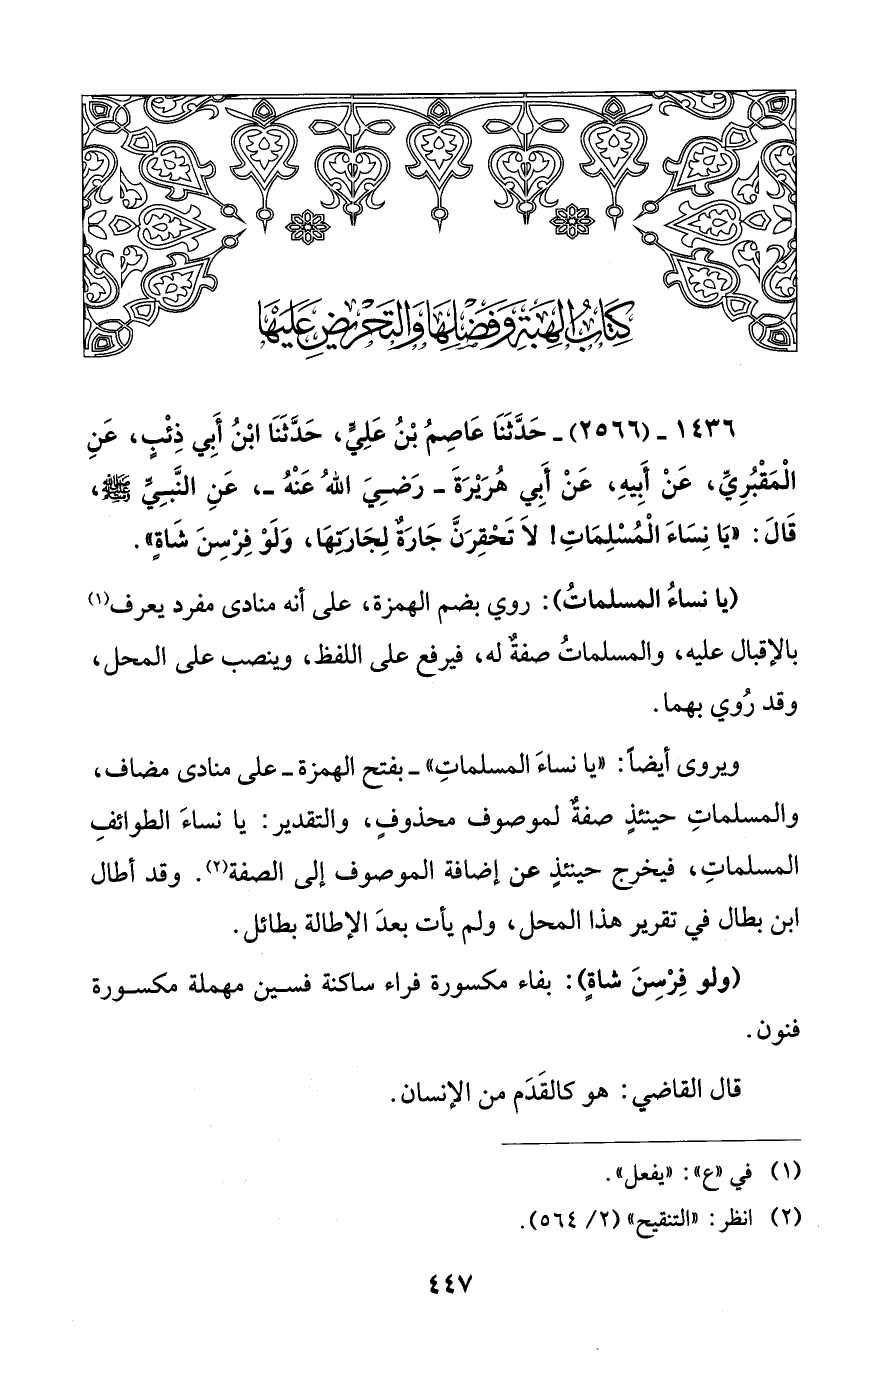 كِتَابُ الهِبَةِ وَفَضْلِهَا وَالتَّحْرِيضِ عَلَيْهَا
١٤٣٦ ـ (٢٥٦٦) ـ حَدَّثَنَا عَاصِمُ بْنُ عَلِيٍّ، حَدَّثَنَا ابْنُ أَبِي ذِئْبٍ، عَنِ
الْمَقْبُرِيِّ، عَنْ أَبِيهِ، عَنْ أَبِي هُرَيْرَةَ ـ رَضِيَ اللهُ عَنْهُ ـ، عَنِ النَّبِيِّ ﷺ،
قَالَ: «يَا نِسَاءَ الْمُسْلِمَاتِ! لاَ تَحْقِرَنَّ جَارَةٌ لِجَارَتِهَا، وَلَوْ فِرْسِنَ شَاةٍ».
(يا نساءُ المسلماتُ): روي بضم الهمزة، على أنه منادى مفرد يعرف(١)
بالإقبال عليه، والمسلماتُ صفةٌ له، فيرفع على اللفظ، وينصب على المحل،
وقد رُوي بهما.
ويروى أيضاً: «يا نساءَ المسلماتِ» ـ بفتح الهمزة ـ على منادى مضاف،
والمسلماتِ حينئذٍ صفةٌ لموصوف محذوفٍ، والتقدير: يا نساءَ الطوائفِ
المسلماتِ، فيخرج حينئذٍ عن إضافة الموصوف إلى الصفة(٢). وقد أطال
ابن بطال في تقرير هذا المحل، ولم يأت بعدَ الإطالة بطائل.
(ولو فِرْسِنَ شاةٍ): بفاء مكسورة فراء ساكنة فسين مهملة مكسورة
فنون.
قال القاضي: هو كالقَدَم من الإنسان.
(١) في «ع»: «يفعل».
(٢) انظر: «التنقيح» (٢/ ٥٦٤).
٤٤٧